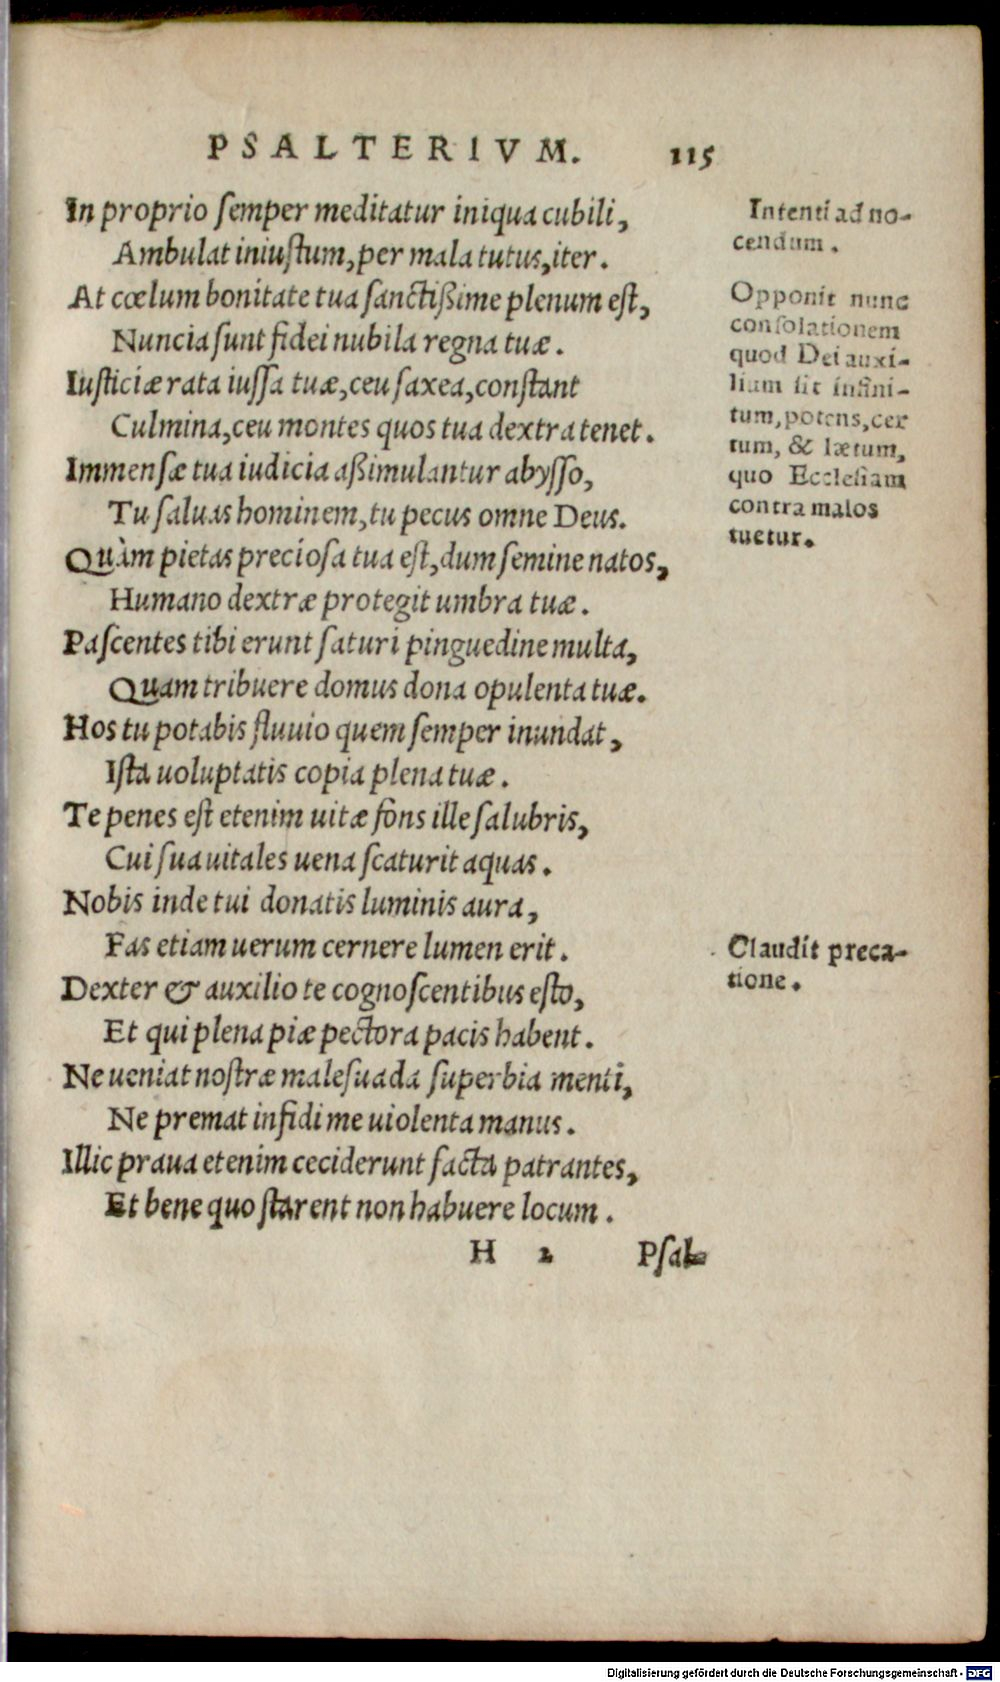 PSALTERIVM. 115
In proprio semper meditatur iniqua cubili,
Ambulat iniustum, per mala tutus, iter.
At cœlum bonitate tua sanctißime plenum est,
Nuncia sunt fidei nubila regna tuæ.
Iusticiæ rata iussa tuæ, ceu saxea, constant
Culmina, ceu montes quos tua dextra tenet.
Immensæ tua iudicia aßimulantur abysso,
Tu saluas hominem, tu pecus omne Deus.
Quàm pietas preciosa tua est, dum semine natos,
Humano dextræ protegit umbra tuæ.
Pascentes tibi erunt saturi pinguedine multa,
Quam tribuere domus dona opulenta tuæ.
Hos tu potabis fluuio quem semper inundat,
Ista uoluptatis copia plena tuæ.
Te penes est etenim uitæ fons ille salubris,
Cui sua uitales uena scaturit aquas.
Nobis inde tui donatis luminis aura,
Fas etiam uerum cernere lumen erit.
Dexter & auxilio te cognoscentibus esto,
Et qui plena piæ pectora pacis habent.
Ne ueniat nostræ malesuada superbia menti,
Ne premat infidi me uiolenta manus.
Illic praua etenim ceciderunt facta patrantes,
Et bene quo starent non habuere locum.
H 2 Psal-
Intenti ad no-
cendum.
Opponit nunc
consolationem
quod Dei auxi-
lium sit infini-
tum, potens, cer
tum, & lætum,
quo Ecclesiam
contra malos
tuetur.
Claudit preca-
tione.
Digitalisierung gefördert durch die Deutsche Forschungsgemeinschaft - DFG